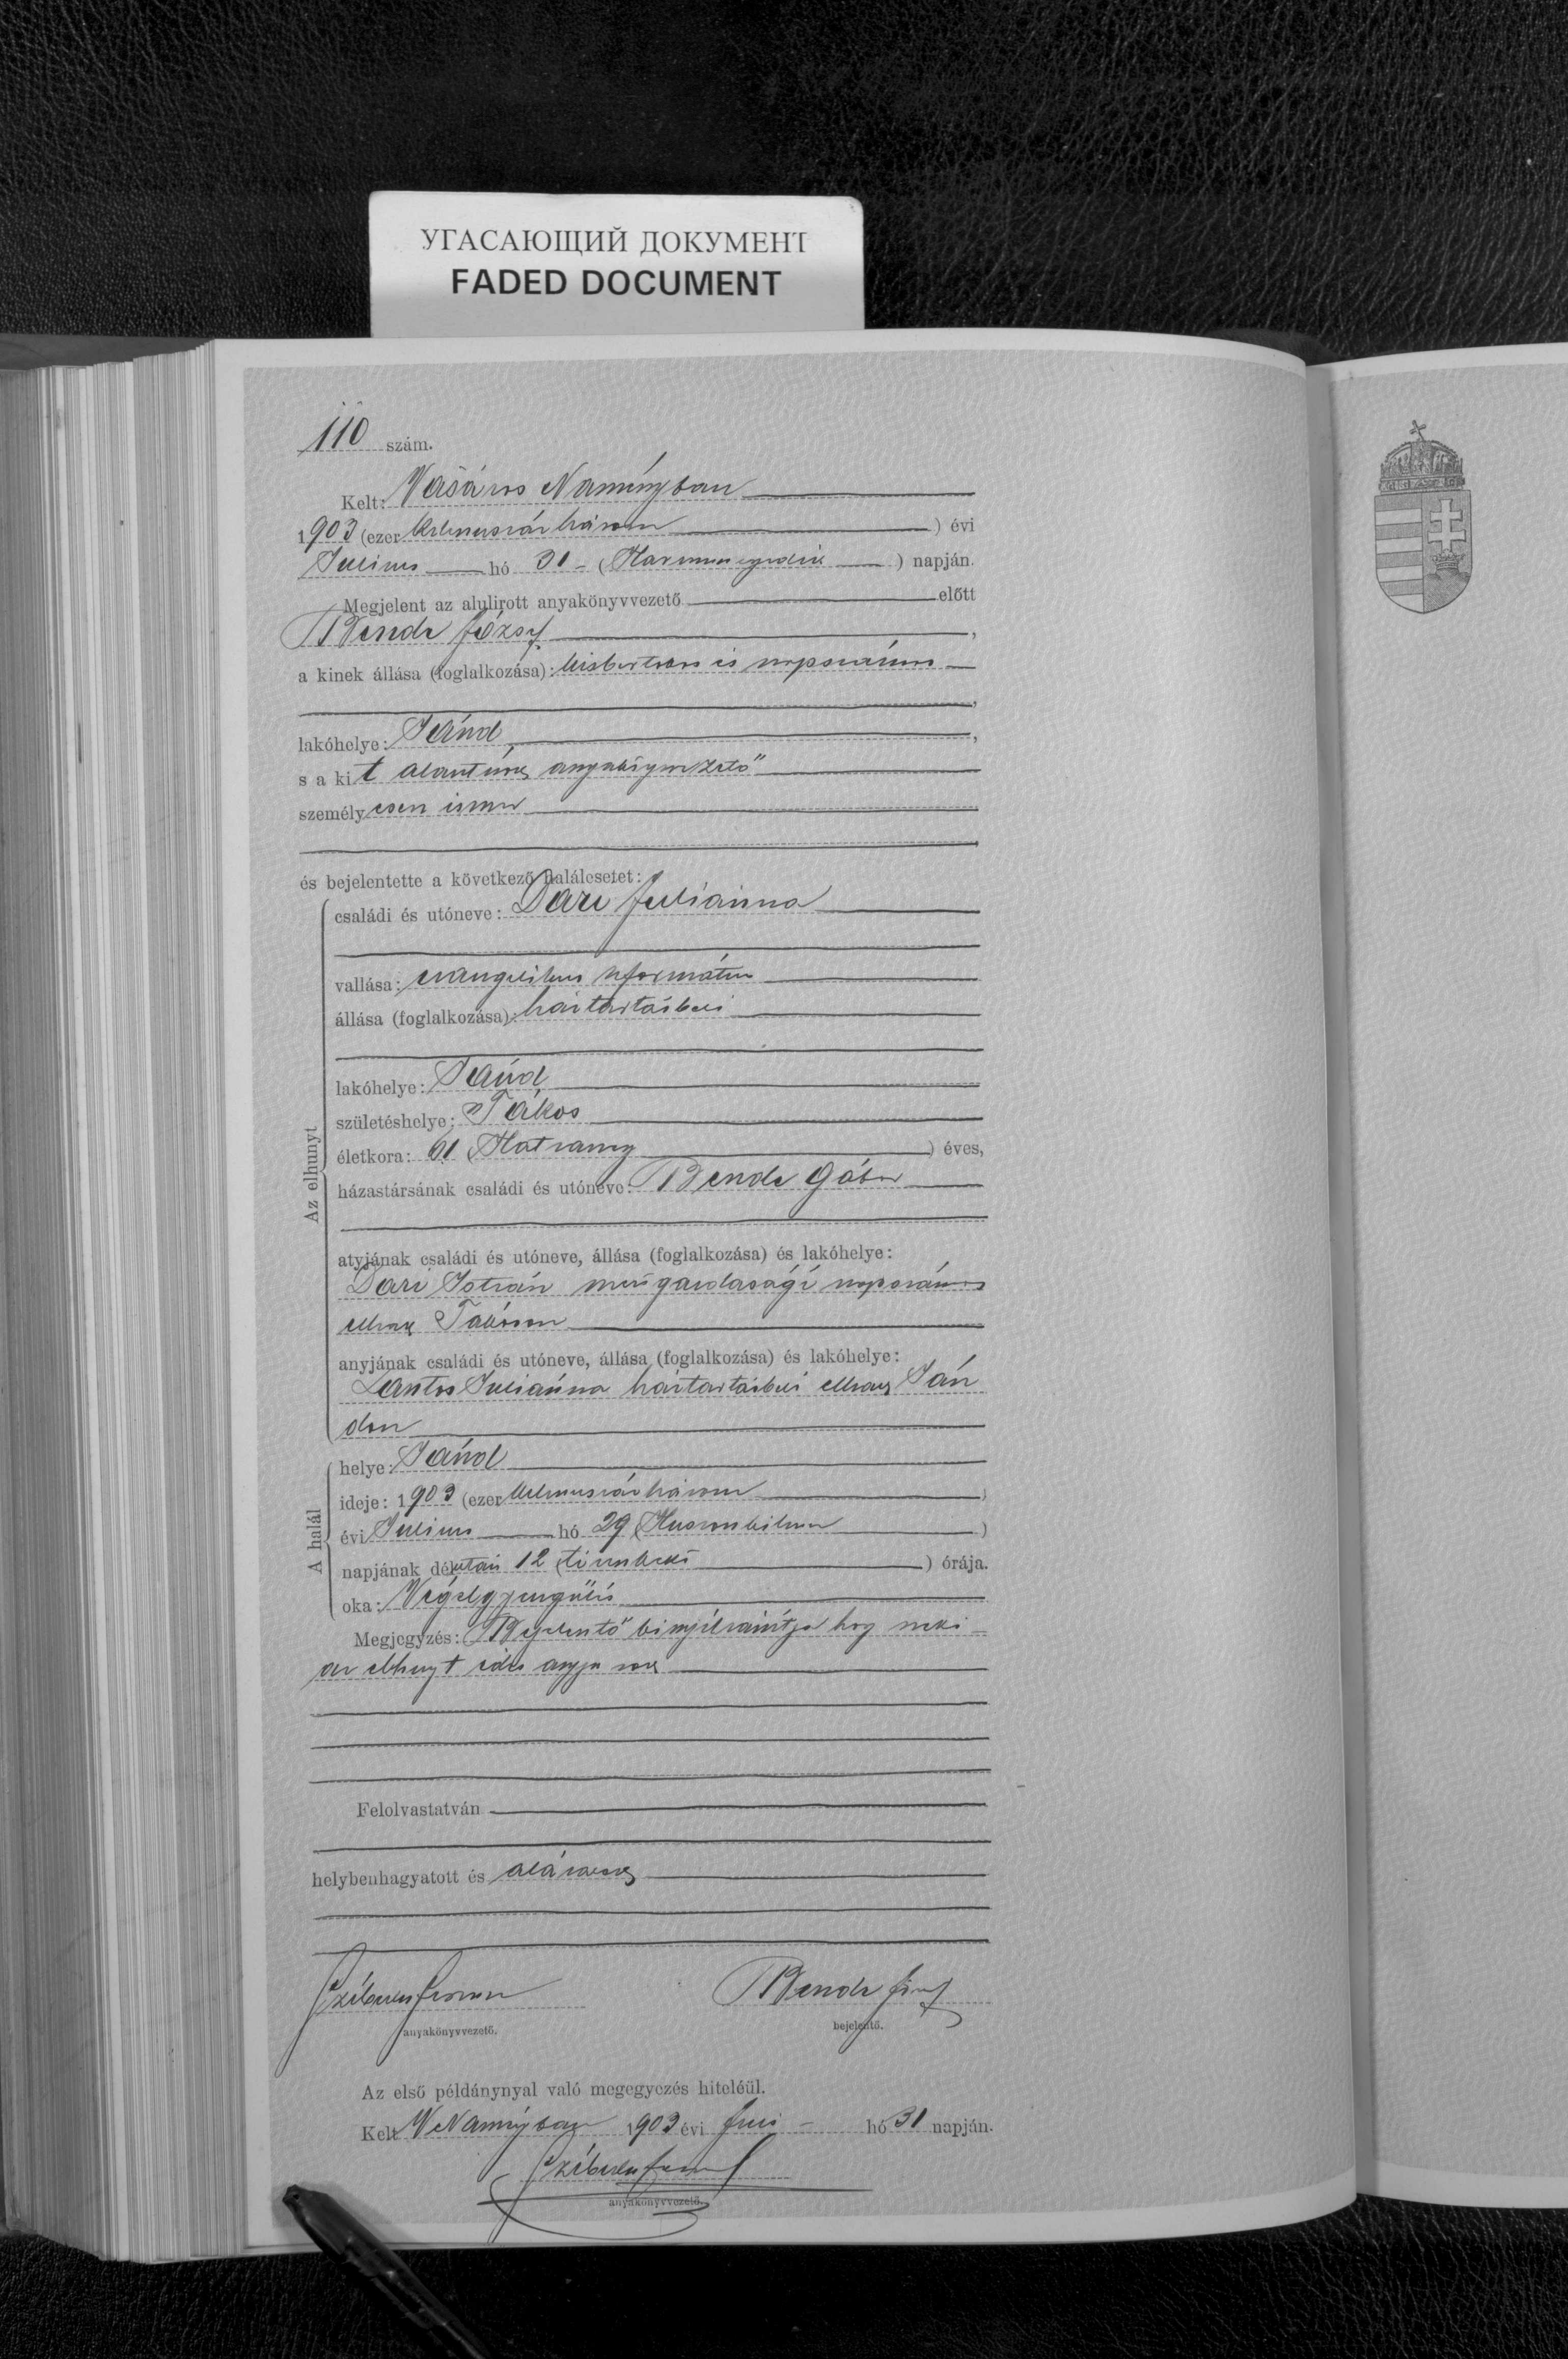 УГАСАЮЩИЙ ДОКУМЕНТ
FADED DOCUMENT
110 szám.
Kelt: Vásáros Naményban
1903 (ezer kilenczszázhárom) évi
Julius hó 31 - (Harminczegyedik) napján.
Megjelent az alulirott anyakönyvvezető előtt
Bende József,
a kinek állása (foglalkozása): kisbirtokos és napszámos
lakóhelye: Jánd,
s a kit alantírt anyakönyvvezető
személyesen ismer
és bejelentette a következő halálesetet:
Az elhunyt
családi és utóneve: Dari Juliánna
vallása: evangelikus református
állása (foglalkozása): háztartásbeli
lakóhelye: Jánd
születéshelye: Tákos
életkora: 61 (Hatvanegy) éves,
házastársának családi és utóneve: Bende Gábor
atyjának családi és utóneve, állása (foglalkozása) és lakóhelye:
Dari István mezőgazdasági napszámos
elhalt Tákoson
anyjának családi és utóneve, állása (foglalkozása) és lakóhelye:
Lantos Juliánna háztartásbeli elhalt Ján
don
A halál
helye: Jánd
ideje: 1903 (ezer kilenczszázhárom)
évi Julius hó 29 (Huszonkilencz)
napjának délután 12 (tizenkettő) órája.
oka: Végelgyengülés
Megjegyzés: Bejelentő kinyilvánítja hogy neki
az elhunyt édes anyja volt
Felolvastatván
helybenhagyatott és aláíratott
anyakönyvvezető.
Bende József
bejelentő.
Az első példánynyal való megegyezés hiteléül.
Kelt VNaményban 1903 évi Juli - hó 31 napján.
anyakönyvvezető.